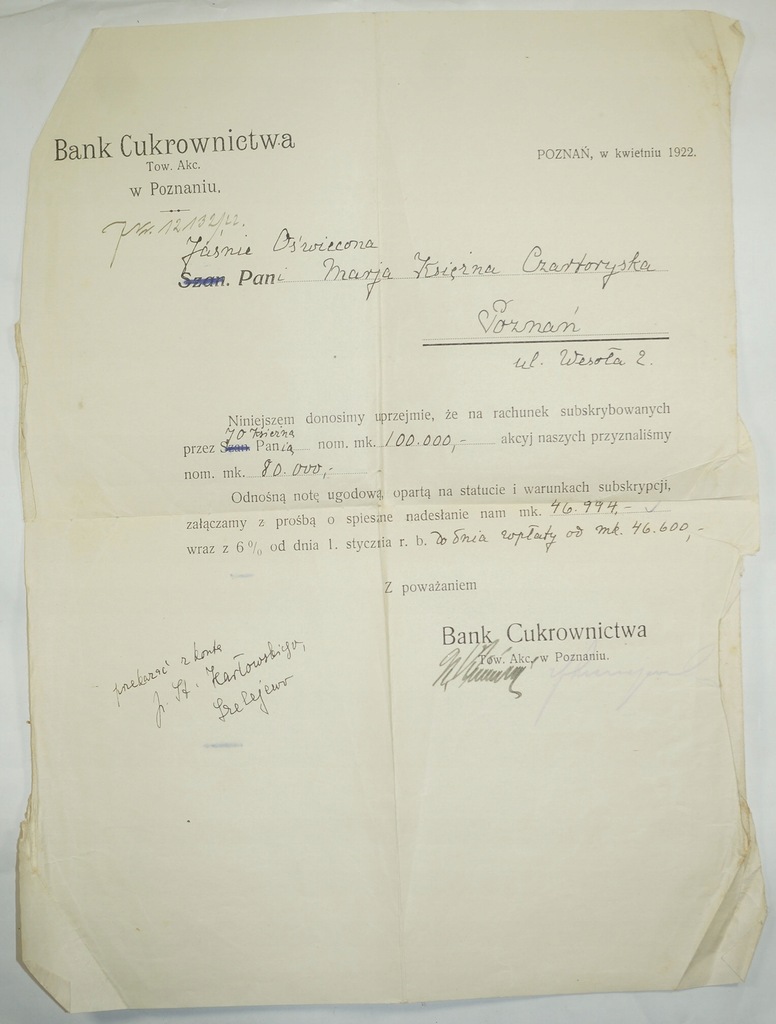 Bank Cukrownictwa
POZNAŃ, w kwietniu 1922.
Tow. Akc.
w Poznaniu.
12132/22.
Jaśnie Oświecona
Szan. Pani Marja Księżna Czartoryska
Poznań
ul. Wesoła 2.
Niniejszem donosimy uprzejmie, że na rachunek subskrybowanych
JO Księżną
przez Szan. Panią nom. mk. 100.000,- akcyj naszych przyznaliśmy
nom. mk. 80.000,-
Odnośną notę ugodową, opartą na statucie i warunkach subskrypcji,
załączamy z prośbą o spieszne nadesłanie nam mk. 46.994,-
wraz z 6% od dnia 1. stycznia r. b. do dnia wpłaty od mk. 46.600,-
Z poważaniem
Bank Cukrownictwa
Tow. Akc. w Poznaniu.
przekazać z konta
p. St. Karłowskiego,
Szelejewo